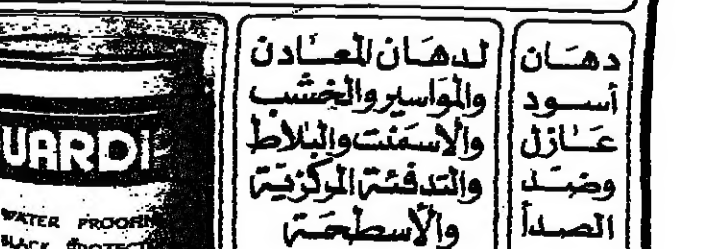 دهان
أسود
عازل
وضد
الصدأ
لدهان المعادن
والمواسير والخشب
والاسمنت والبلاط
والتدفئة المركزية
والأسطحة
UARDI
WATER PROOFIN
BLACK PROTECT